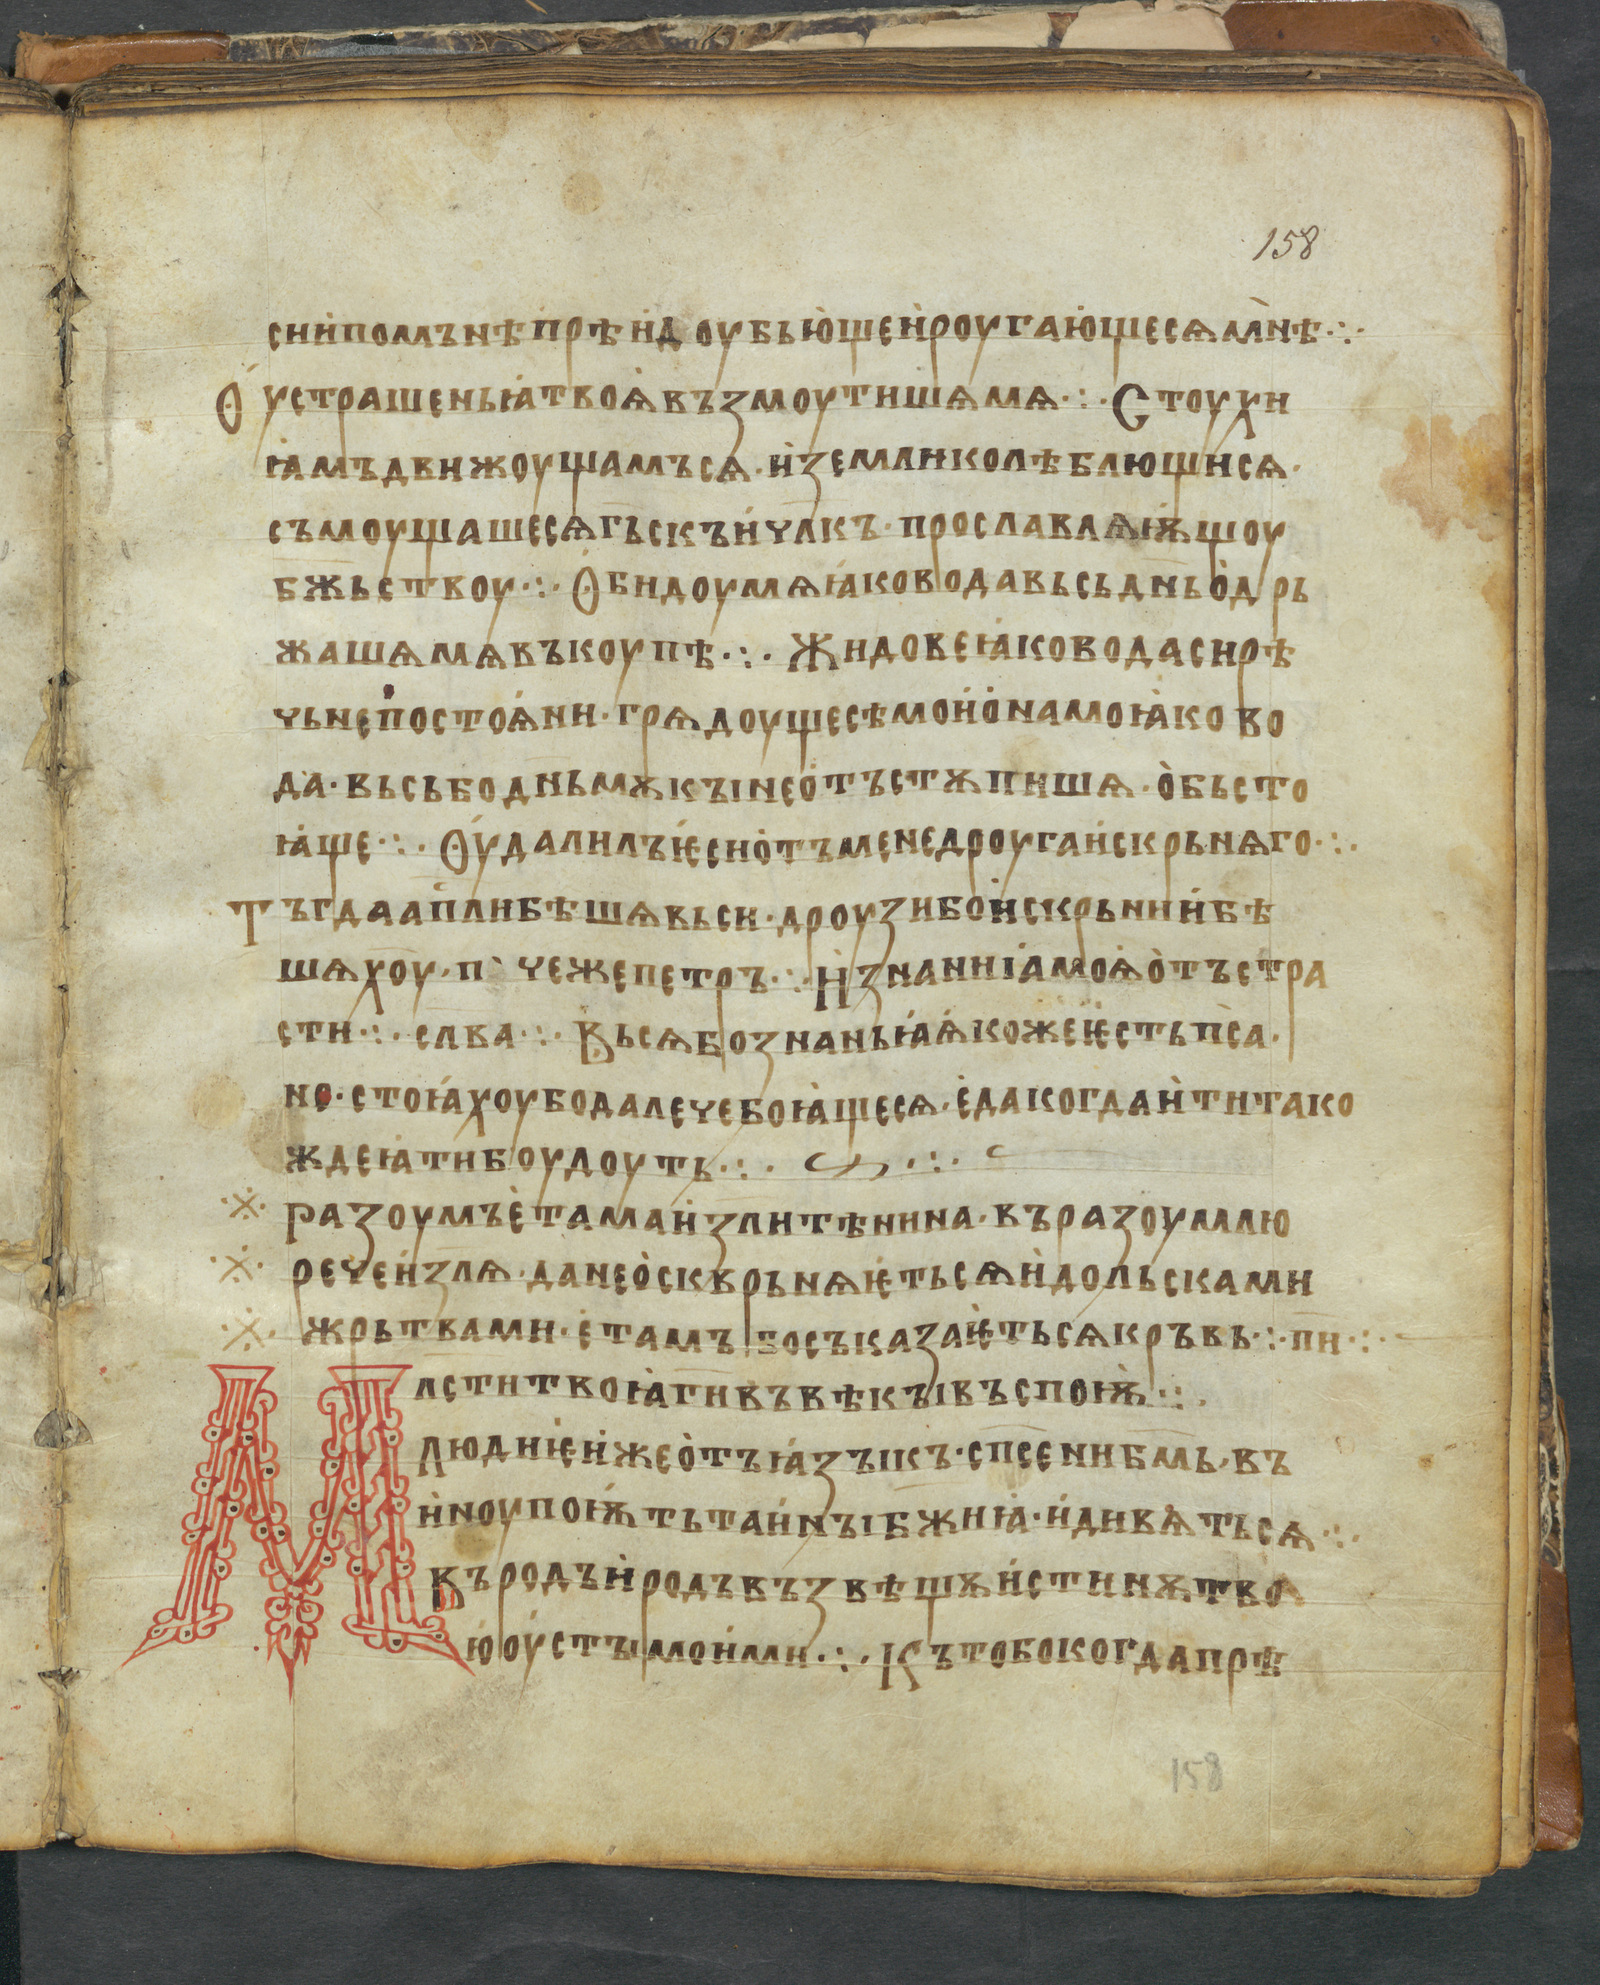 158
сии̇помънѣпрѣи̇доубьющеи̇роугающесѧмнѣ ·:·
Оустрашеньꙗтвоѧ̇възмоутишѧмѧ ·:· Стоухи
ꙗмъдвижоущамъсѧ · и̇земликолѣблющисѧ ·
съмоущашесѧгьскъи̇члкъ · прославлѧѭщоу
бжьствоу ·:· Обидоумѧꙗководавьсьдньо̇дрь
жашѧмѧвъкоупѣ ·:· Жидовеꙗководасирѣ
чьнепостоѧ̇ни · грѧдоущесѣмои̇о̇намоꙗково
да · вьсьбодньмѫкъінео̇тъстѫпишѧ · о̇бьсто
ꙗще ·:· Оу̇далилъѥсио̇тъменедроугаи̇скрьнѧго ·:·
Тъгдааплибѣшѧвьси · дроузибои̇скрьнии̇бѣ
шѧхоу · п чежепетръ ·:· И̇знанниꙗмоѧ̇о̇тъстра
сти ·:· слва ·:· Вьсѧбознаньꙗꙗ̇кожеѥстьпса ·
но · стоꙗхоубодалечебоꙗщесѧ · е̇дакогдаи̇титако
ждеꙗтибоудоуть ·:·
разоумъе̇тамаи̇злитѣнина · въразоумлю
речеи̇злѧ · данео̇сквернѧѥтьсѧи̇дольсками
жрьтвами · е̇тамъбосъказаѥтьсѧкръвь ·:· пи ·:·
Млститвоꙗгивъвѣкъівъспоѭ ·:·
Людиѥи̇жео̇тъꙗзъікъ · спсенибмь · въ
и̇ноупоѭтьтаи̇нъібжиꙗ · и̇дивѧтьсѧ ·:·
Въродъи̇родъвъзвѣщѫи̇стинѫтво
юоу̇стъімои̇ми ·:· Къ тобокогдапрѣ
158